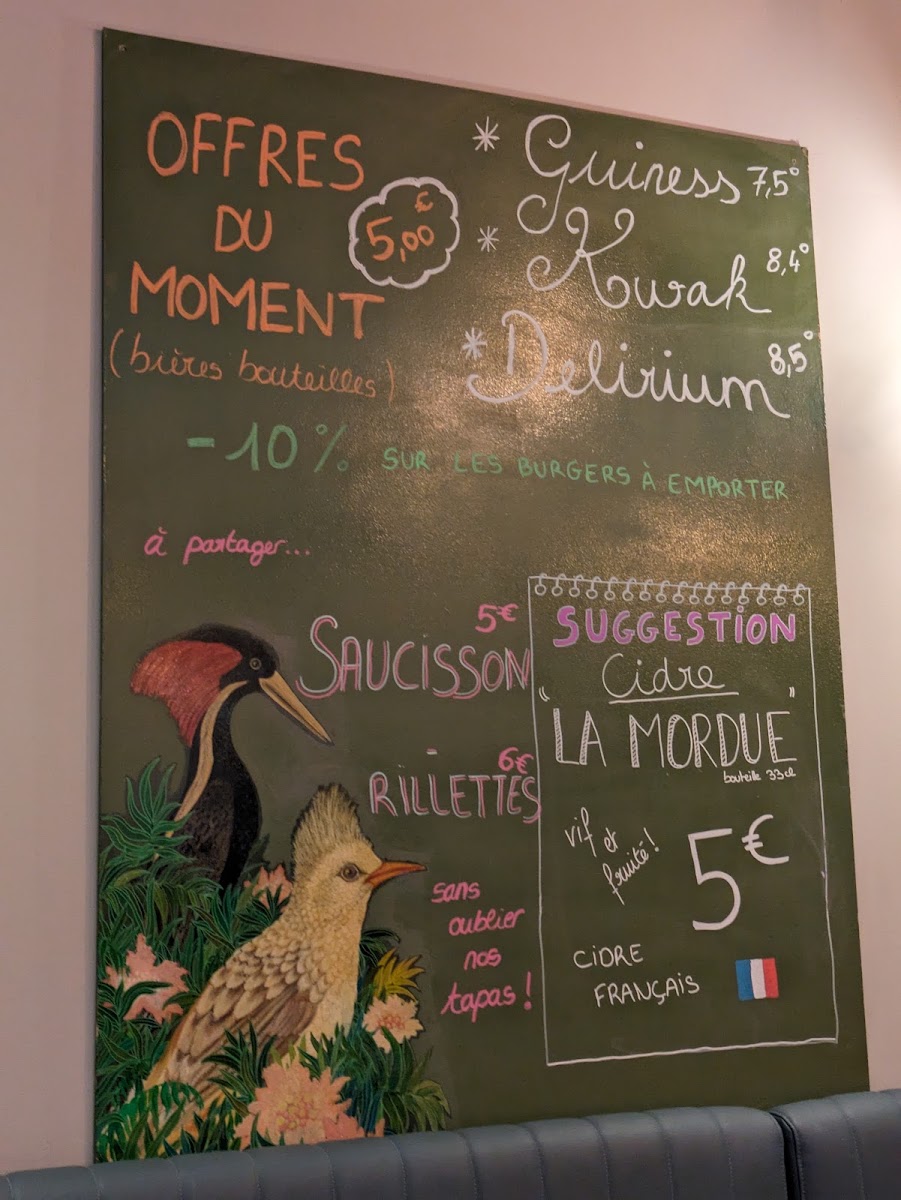 OFFRES
DU
MOMENT
(bières bouteilles)
5,00 €
* Guiness 7,5°
* Kwak 8,4°
* Delirium 8,5°
-10% SUR LES BURGERS À EMPORTER
à partager...
5€
SAUCISSON
-
6€
RILLETTES
sans
oublier
nos
tapas !
SUGGESTION
Cidre
"LA MORDUE"
bouteille 33cl
vif et
fruité !
5€
CIDRE
FRANÇAIS